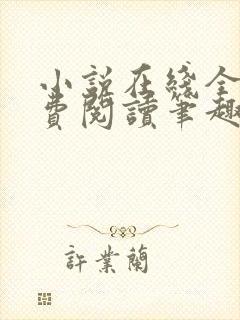 小説在綫全
費閱讀筆趣
許業蘭